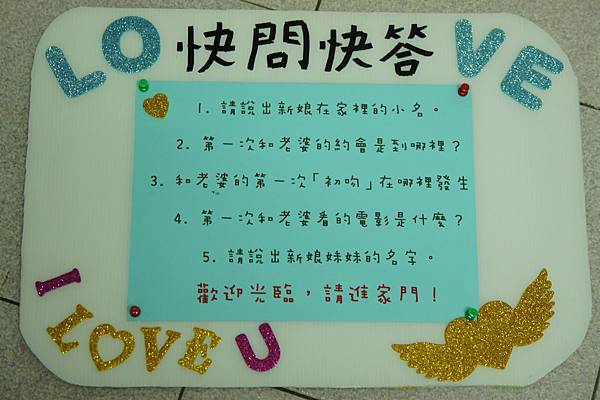 LO 快問快答 VE
1. 請說出新娘在家裡的小名。
2. 第一次和老婆的約會是到哪裡?
3. 和老婆的第一次「初吻」在哪裡發生
4. 第一次和老婆看的電影是什麼?
5. 請說出新娘妹妹的名字。
歡迎光臨,請進家門!
I
LOVE
U